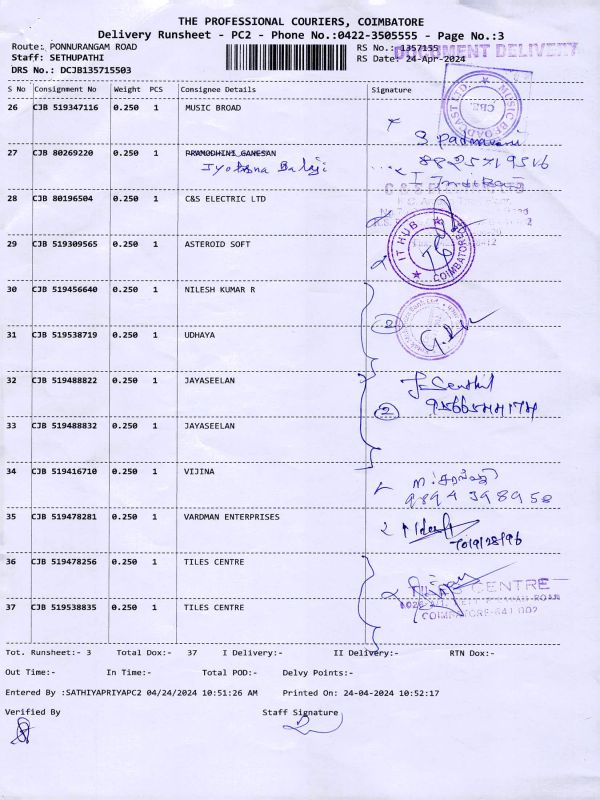 THE PROFESSIONAL COURIERS, COIMBATORE
Delivery Runsheet - PC2 - Phone No.:0422-3505555 - Page No.:3
Route: PONNURANGAM ROAD
RS No.: 1357155
DOCUMENT DELIVERY
Staff: SETHUPATHI
RS Date: 24-Apr-2024
DRS No.: DCJB135715503
S No Consignment No Weight PCS Consignee Details Signature
26 CJB 519347116 0.250 1 MUSIC BROAD
MUSIC BROADCAST LTD. CBE.
S. Padmavani
27 CJB 80269220 0.250 1 PRAMODHINI GANESAN
Jyothsna Balaji
28 CJB 80196504 0.250 1 C&S ELECTRIC LTD
29 CJB 519309565 0.250 1 ASTEROID SOFT
IT HUB COIMBATORE
30 CJB 519456640 0.250 1 NILESH KUMAR R
2
31 CJB 519538719 0.250 1 UDHAYA
32 CJB 519488822 0.250 1 JAYASEELAN
Senthil
2
33 CJB 519488832 0.250 1 JAYASEELAN
34 CJB 519416710 0.250 1 VIJINA
9894 398958
35 CJB 519478281 0.250 1 VARDMAN ENTERPRISES
36 CJB 519478256 0.250 1 TILES CENTRE
TILES CENTRE
COIMBATORE-641 002
37 CJB 519538835 0.250 1 TILES CENTRE
Tot. Runsheet:- 3 Total Dox:- 37 I Delivery:- II Delivery:- RTN Dox:-
Out Time:- In Time:- Total POD:- Delvy Points:-
Entered By :SATHIYAPRIYAPC2 04/24/2024 10:51:26 AM Printed On: 24-04-2024 10:52:17
Verified By Staff Signature